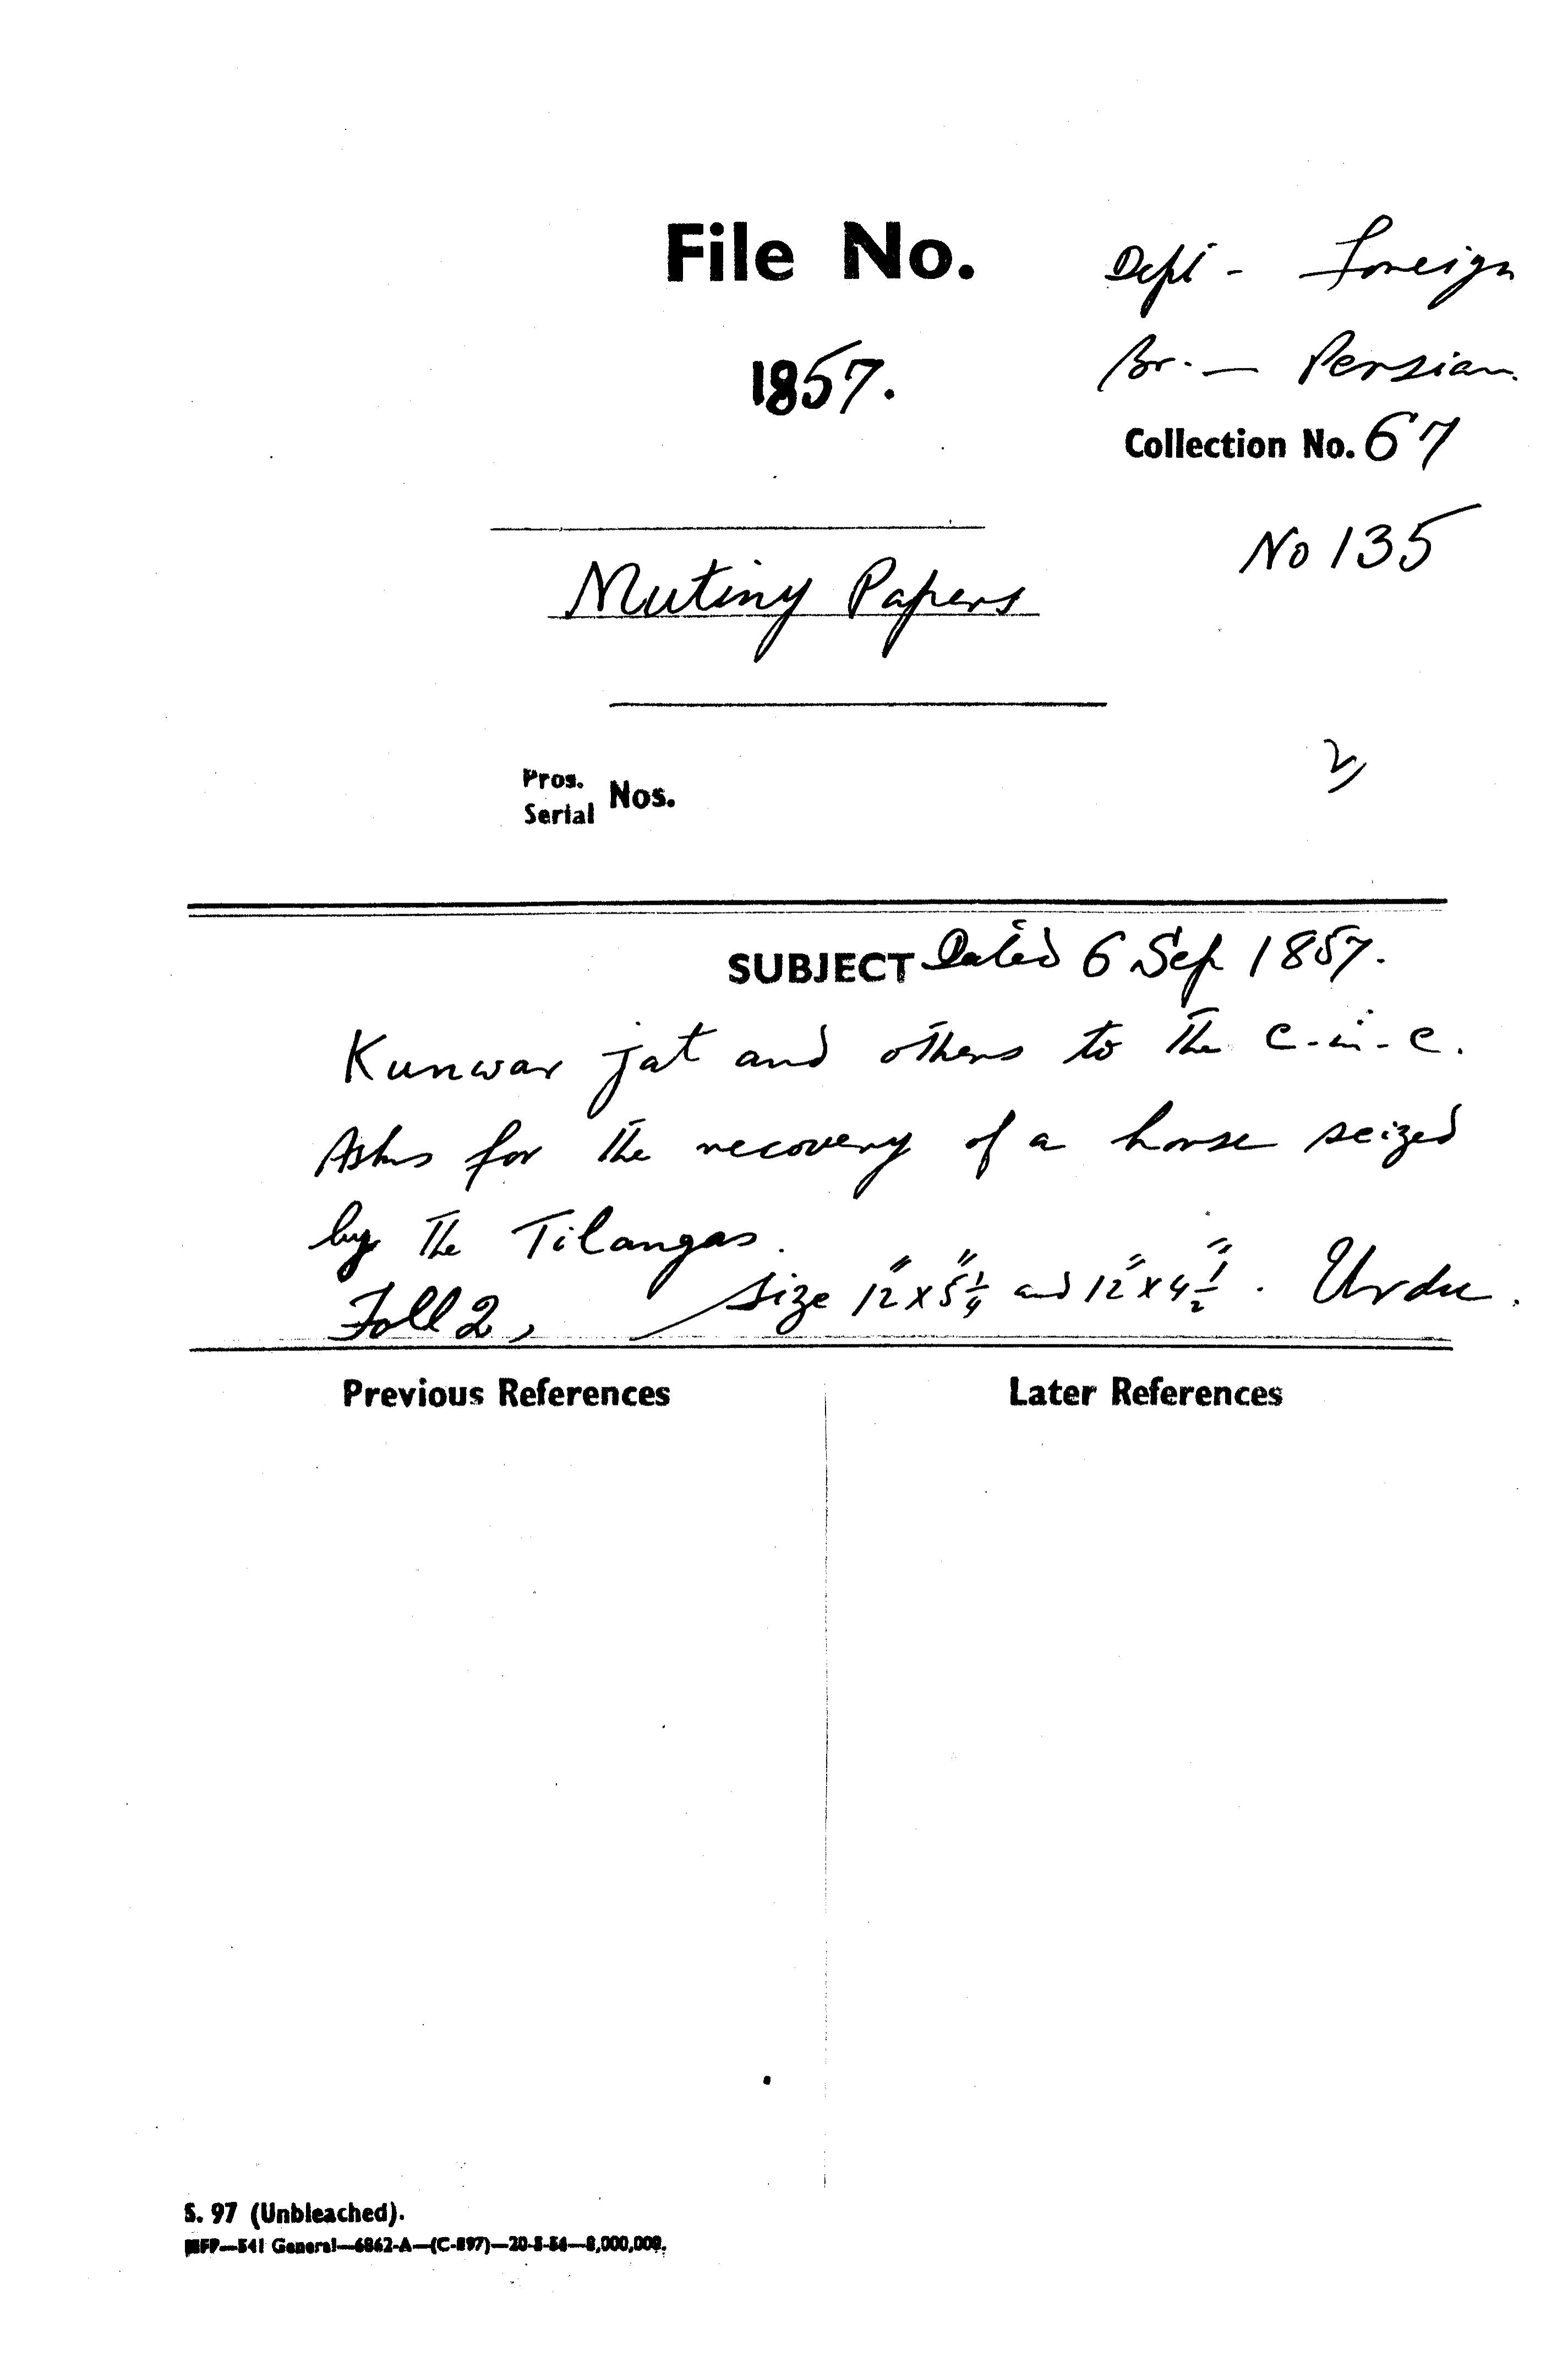 File No.
Dept - Foreign
1857.
Br. — Persian
Collection No. 67
No 135
Mutiny Papers
Pros.
Serial Nos.
SUBJECT Dated 6 Sep 1857.
Kunwar jat and others to the C-in-C.
Asks for the recovery of a horse seized
by the Tilangas.
Foll 2, Size 12" x 5 1/4" and 12" x 4 1/2". Urdu.
Previous References
Later References
S. 97 (Unbleached).
MFP—541 General—6862-A—(C-897)—20-5-54—8,000,000.